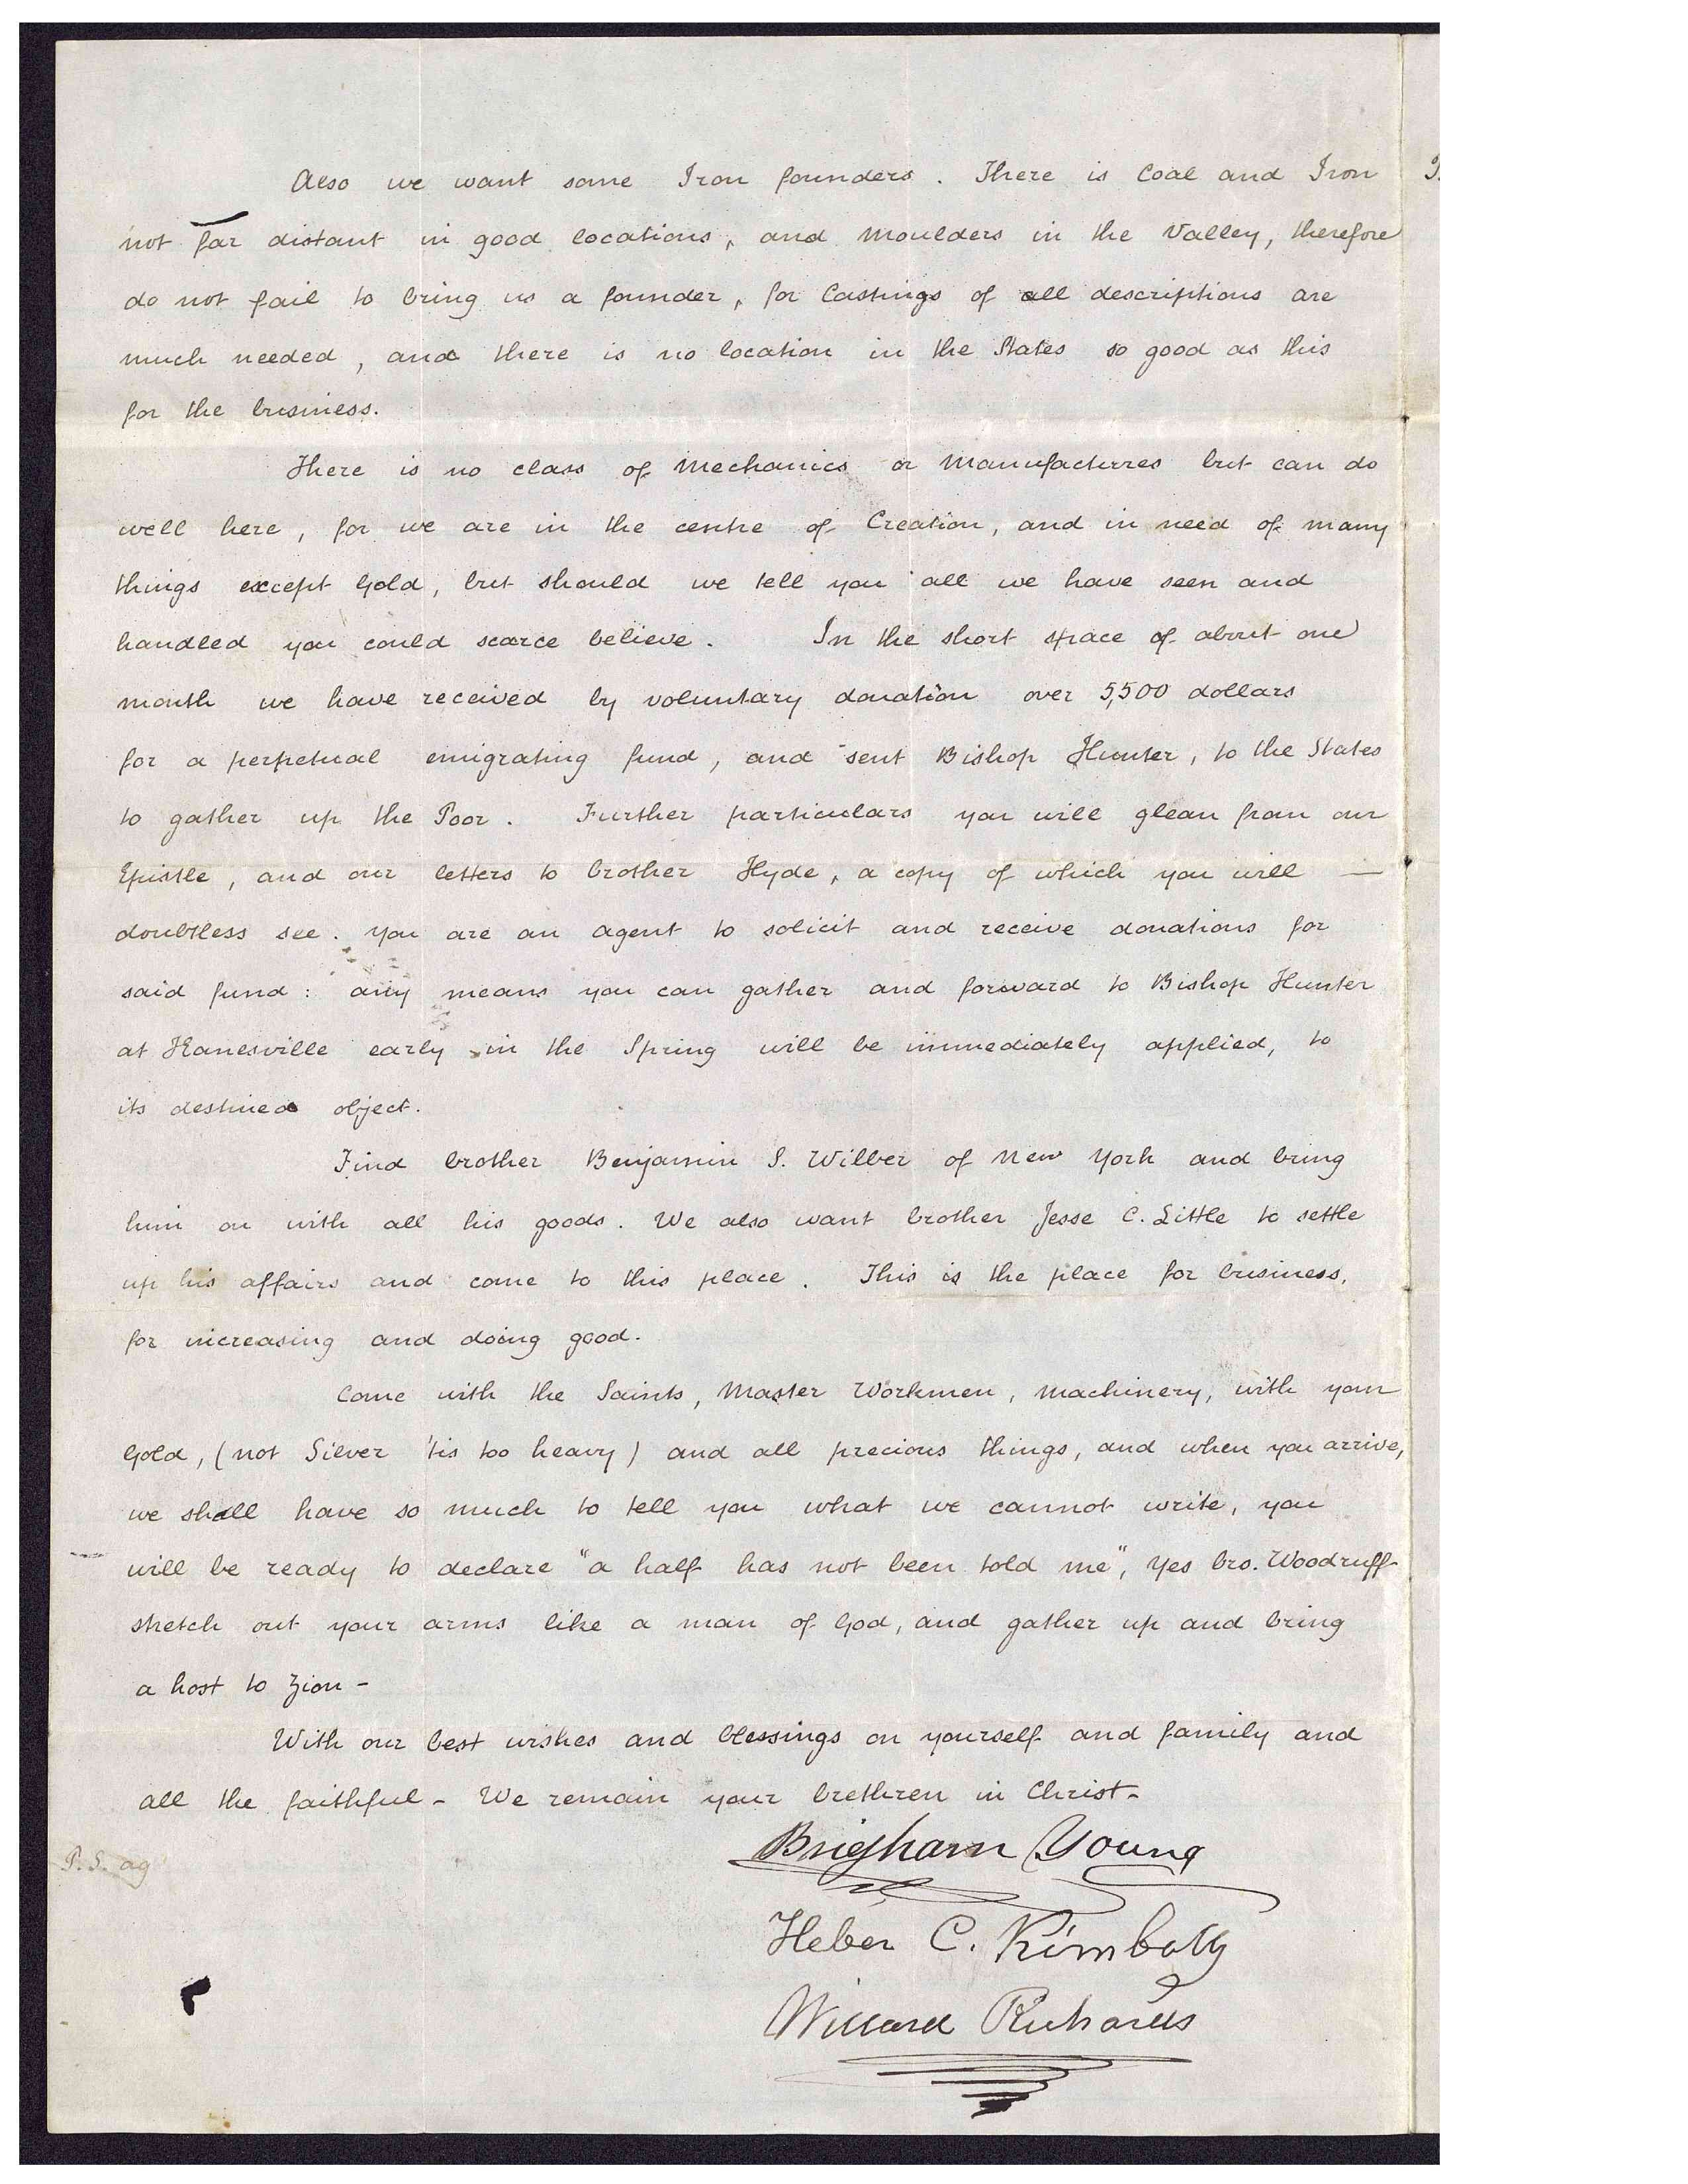 Also we want some Iron founders. There is Coal and Iron
not far distant in good locations, and Moulders in the Valley, therefore
do not fail to bring us a founder, for Castings of all descriptions are
much needed, and there is no location in the States so good as this
for the business.
There is no class of Mechanics or Manufactures but can do
well here, for we are in the centre of Creation, and in need of many
things except Gold, but should we tell you all we have seen and
handled you could scarce believe. In the short space of about one
month we have received by voluntary donation over 5,500 dollars
for a perpetual emigrating fund, and sent Bishop Hunter, to the States
to gather up the Poor. Further particulars you will glean from our
Epistle, and our letters to brother Hyde, a copy of which you will —
doubtless see. You are an agent to solicit and receive donations for
said fund: any means you can gather and forward to Bishop Hunter
at Kanesville early in the Spring will be immediately applied, to
its destined object.
Find brother Benjamin S. Wilber of New York and bring
him on with all his goods. We also want brother Jesse C. Little to settle
up his affairs and come to this place. This is the place for business,
for increasing and doing good.
Come with the Saints, Master Workmen, Machinery, with your
Gold, (not Silver 'tis too heavy) and all precious things, and when you arrive,
we shall have so much to tell you what we cannot write, you
will be ready to declare "a half has not been told me", Yes bro. Woodruff
stretch out your arms like a man of God, and gather up and bring
a host to Zion -
With our best wishes and blessings on yourself and family and
all the faithful - We remain your brethren in Christ -
Brigham Young
P.S. ag
Heber C. Kimball
Willard Richards